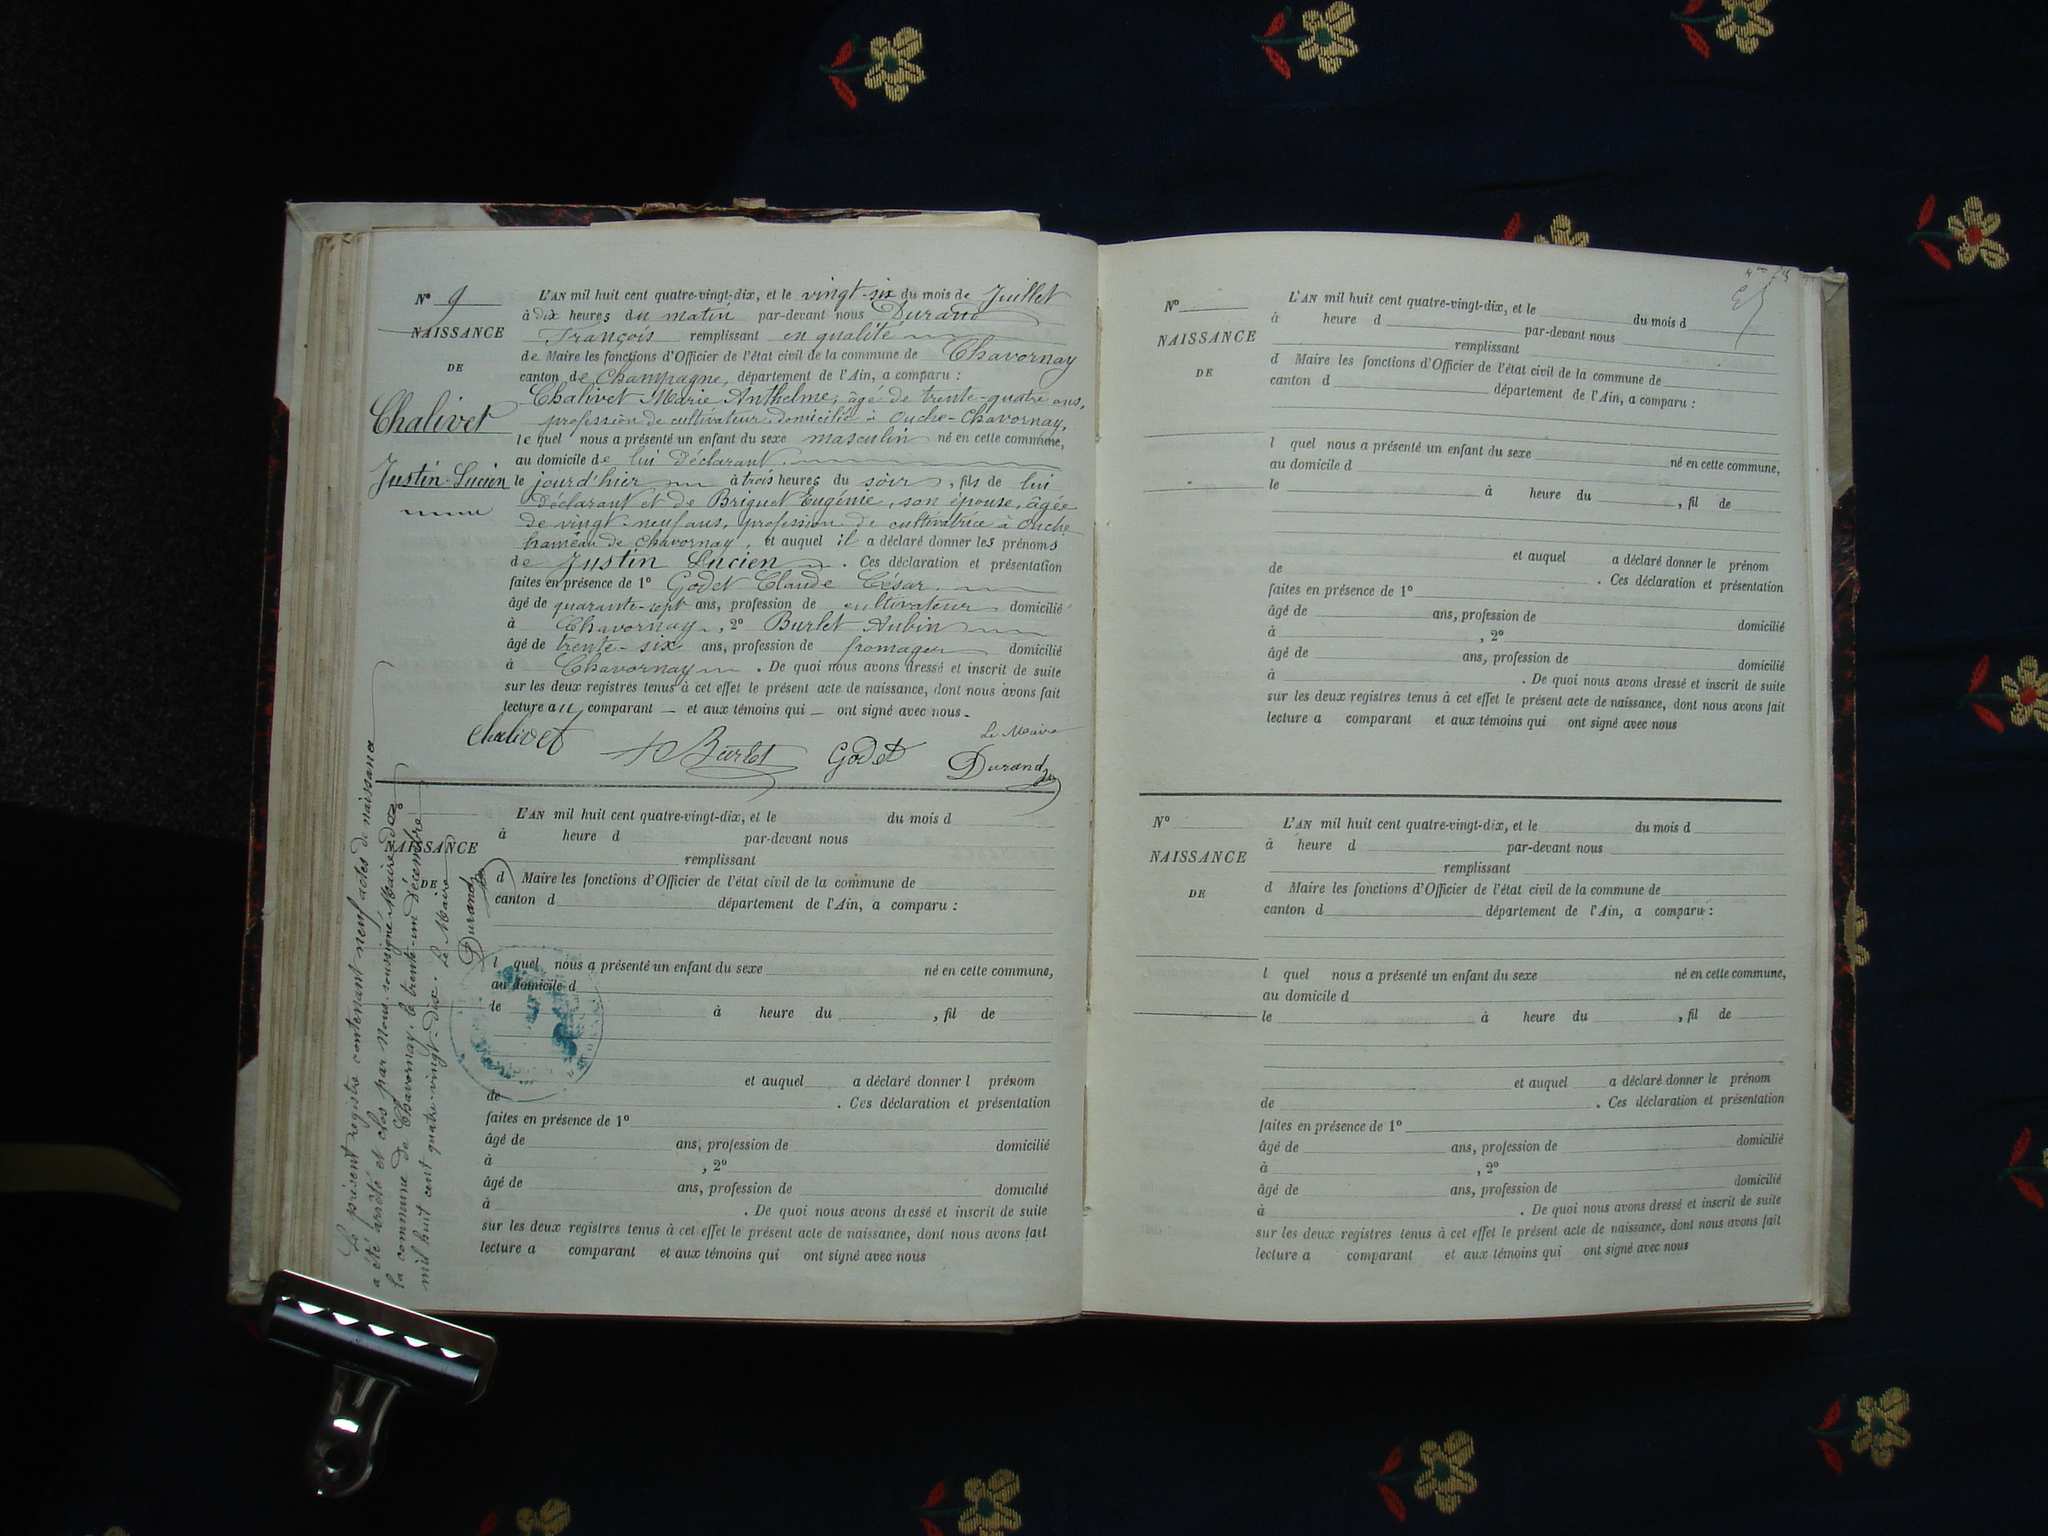 N° 9
NAISSANCE
DE
Chalivet
Justin Lucien
L'AN mil huit cent quatre-vingt-dix, et le vingt-six du mois de Juillet
à dix heures du matin par-devant nous Durand
François remplissant en qualité
de Maire les fonctions d'Officier de l'état civil de la commune de Chavornay
canton de Champagne, département de l'Ain, a comparu :
Chalivet Marie Anthelme, âgé de trente-quatre ans,
profession de cultivateur, domicilié à Ouche-Chavornay,
lequel nous a présenté un enfant du sexe masculin né en cette commune,
au domicile de lui déclarant
le jourd'hier à trois heures du soir, fils de lui
déclarant et de Briguet Eugénie, son épouse, âgée
de vingt-neuf ans, profession de cultivatrice à Ouche
hameau de Chavornay, et auquel il a déclaré donner les prénoms
de Justin Lucien. Ces déclaration et présentation
faites en présence de 1° Godet Claude César.
âgé de quarante-sept ans, profession de cultivateur domicilié
à Chavornay, 2° Burlet Aubin
âgé de trente-six ans, profession de fromager domicilié
à Chavornay. De quoi nous avons dressé et inscrit de suite
sur les deux registres tenus à cet effet le présent acte de naissance, dont nous avons fait
lecture au comparant — et aux témoins qui — ont signé avec nous.
Chalivet Burlet Godet Le Maire
Durand
Le présent registre contenant neuf actes de naissance
a été arrêté et clos par nous soussigné Maire de
la commune de Chavornay, le trente-un décembre
mil huit cent quatre-vingt-dix. Le Maire
Durand
NAISSANCE
DE
L'AN mil huit cent quatre-vingt-dix, et le du mois d
à heure d par-devant nous
remplissant
d Maire les fonctions d'Officier de l'état civil de la commune de
canton d département de l'Ain, a comparu :
l quel nous a présenté un enfant du sexe né en cette commune,
au domicile d
le à heure du , fil de
et auquel a déclaré donner l prénom
de . Ces déclaration et présentation
faites en présence de 1°
âgé de ans, profession de domicilié
à , 2°
âgé de ans, profession de domicilié
à . De quoi nous avons dressé et inscrit de suite
sur les deux registres tenus à cet effet le présent acte de naissance, dont nous avons fait
lecture a comparant et aux témoins qui ont signé avec nous
N°
NAISSANCE
DE
L'AN mil huit cent quatre-vingt-dix, et le du mois d
à heure d par-devant nous
remplissant
d Maire les fonctions d'Officier de l'état civil de la commune de
canton d département de l'Ain, a comparu :
l quel nous a présenté un enfant du sexe né en cette commune,
au domicile d
le à heure du , fil de
et auquel a déclaré donner le prénom
de . Ces déclaration et présentation
faites en présence de 1°
âgé de ans, profession de domicilié
à , 2°
âgé de ans, profession de domicilié
à . De quoi nous avons dressé et inscrit de suite
sur les deux registres tenus à cet effet le présent acte de naissance, dont nous avons fait
lecture a comparant et aux témoins qui ont signé avec nous
N°
NAISSANCE
DE
L'AN mil huit cent quatre-vingt-dix, et le du mois d
à heure d par-devant nous
remplissant
d Maire les fonctions d'Officier de l'état civil de la commune de
canton d département de l'Ain, a comparu :
l quel nous a présenté un enfant du sexe né en cette commune,
au domicile d
le à heure du , fil de
et auquel a déclaré donner le prénom
de . Ces déclaration et présentation
faites en présence de 1°
âgé de ans, profession de domicilié
à , 2°
âgé de ans, profession de domicilié
à . De quoi nous avons dressé et inscrit de suite
sur les deux registres tenus à cet effet le présent acte de naissance, dont nous avons fait
lecture a comparant et aux témoins qui ont signé avec nous